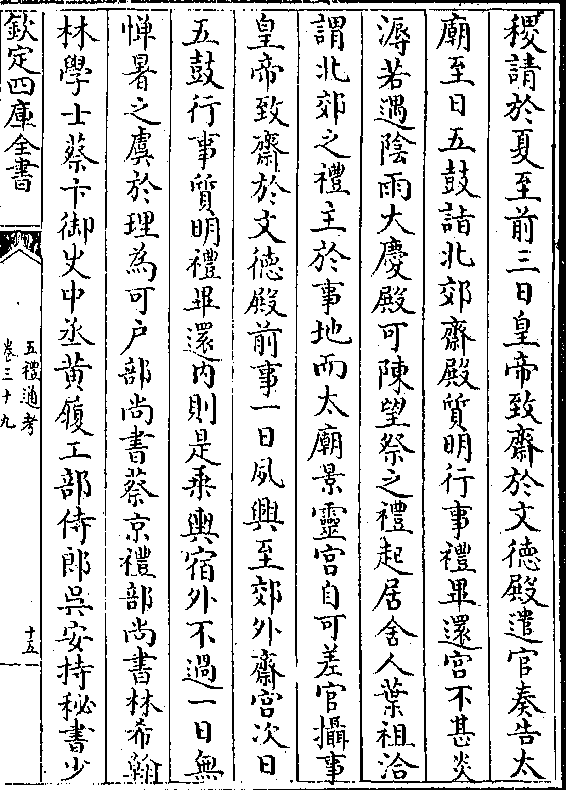 稷請於夏至前三日皇帝致齋於文徳殿遣官奏告太
廟至日五鼓詣北郊齋殿質明行事禮畢還宮不甚炎
溽若遇陰雨大慶殿可陳望祭之禮起居舍人葉祖洽
謂北郊之禮主於事地而太廟景靈宮自可差官攝事
皇帝致齋於文徳殿前事一日夙興至郊外齋宮次日
五鼓行事質明禮畢還内則是乗輿宿外不過一日無
憚暑之虞於理為可户部尚書蔡京禮部尚書林希翰
林學士蔡卞御史中丞黄履工部侍郎吳安持秘書少
欽定四庫全書
五禮通考
卷三十九
十五